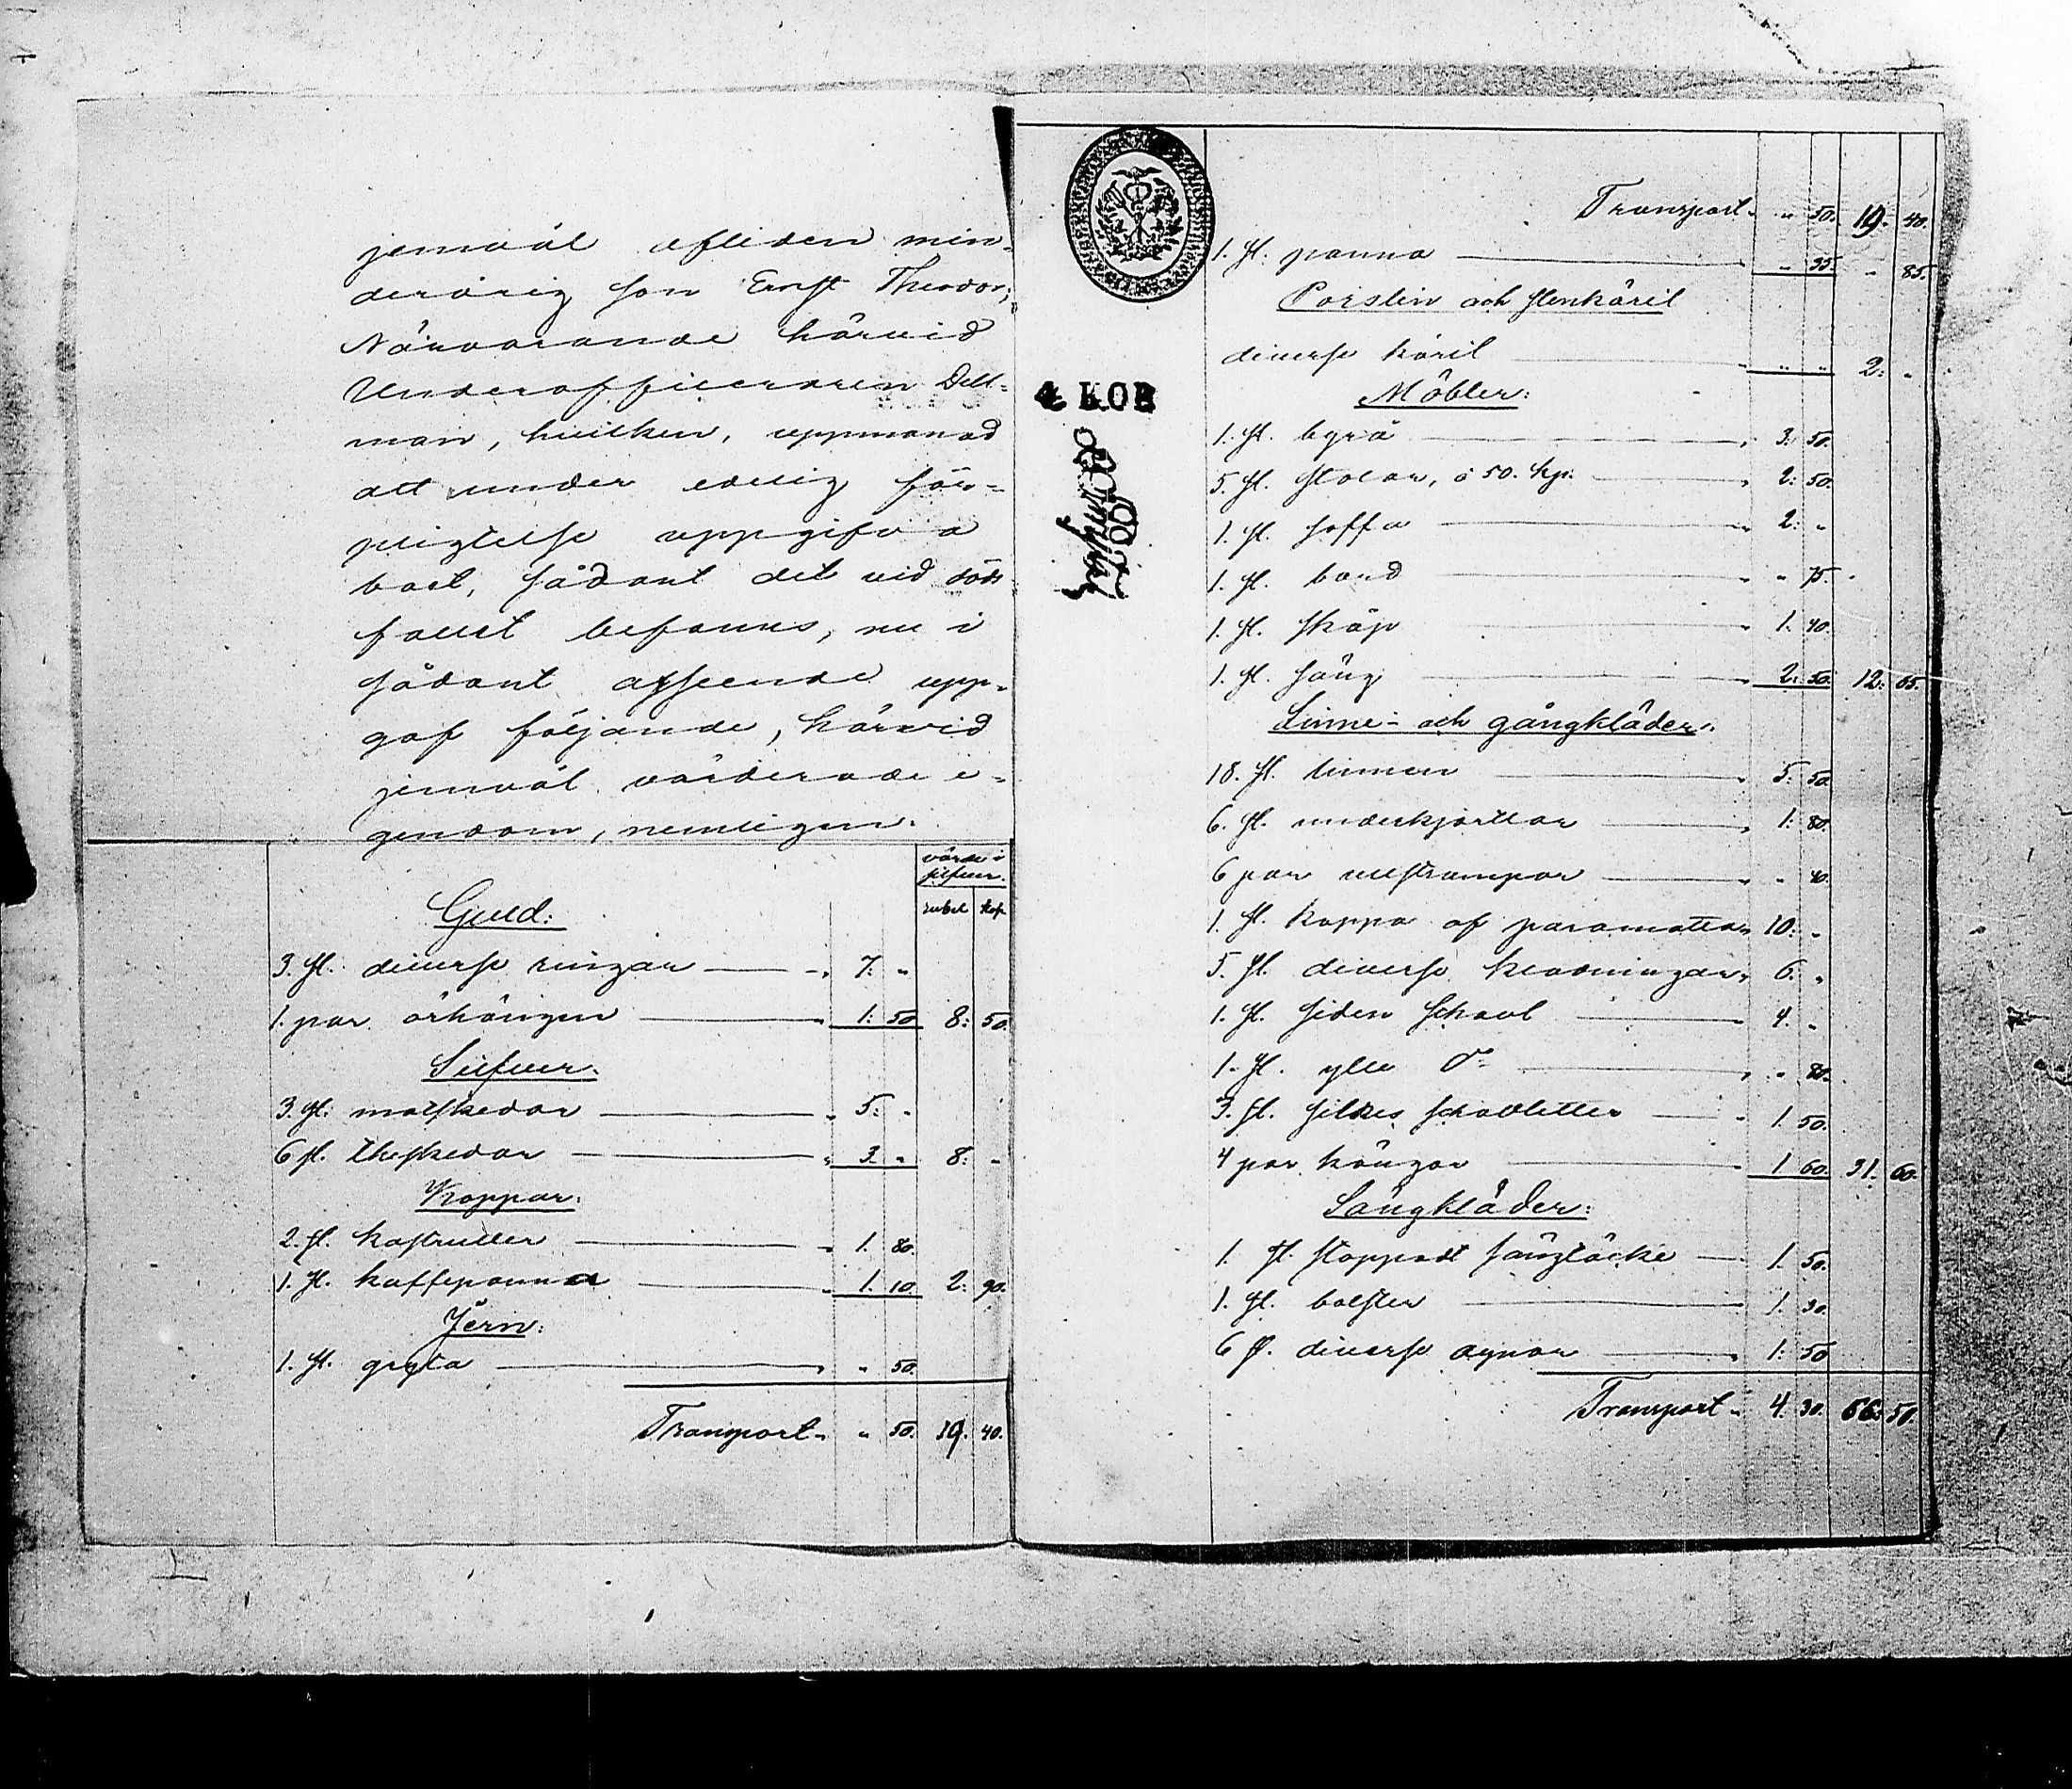 jemväl afliden min-
derårig son Ernst Theodor;
Närvarande härvid
Underofficeraren Dell-
man, hvilken, uppmanad
att under edelig för-
pligtelse uppgifva
boet, sådant det vid döds
fallet befanns, nu i
sådant afseende upp-
gaf följande, härvid
jemväl värderade e-
gendom, nemligen:
värde i
silfver.
rubel kop
Guld:
3. st. diverse ringar — 7. "
1. par örhängen — 1: 50 8: 50.
Silfver.
3. st. matskedar — 5: "
6 st. theskedar — 3. " 8: "
Koppar:
2. st. kastruller — 1. 80.
1. st. kaffepanna — 1. 10. 2: 90.
Jern:
1. st. gryta — " 50.
Transport " 50. 19. 40.
4 KOP
Transport " 50. 19. 40.
1. st. panna — " 35 " 85.
Porslin och stenkäril
diverse käril — " " 2: "
Möbler:
1. st. byrå — 3. 50.
5. st. stolar, à 50. kp. — 2: 50.
1. st. soffa — 2. "
1. st. bord — " 75.
1. st. skåp — 1. 40.
1. st. säng — 2: 50. 12: 65.
Linne- och gångkläder:
18. st. linnen — 5. 50.
6. st. underkjortlar — 1. 80.
6 par ullstrumpor — " 40.
1. st. kappa af paramatta 10: "
5. st. diverse kladningar 6. "
1. st. siden schaol — 4. "
1. st. ylle do — " 80.
3. st. silkes schaletter — 1. 50.
4 par kängor — 1 60. 31. 60.
Sängkläder:
1. st. stoppadt sängtäcke — 1. 50.
1. st. bolster — 1. 30.
6 st. diverse dynor — 1: 50
Transport 4. 30. 66: 50.